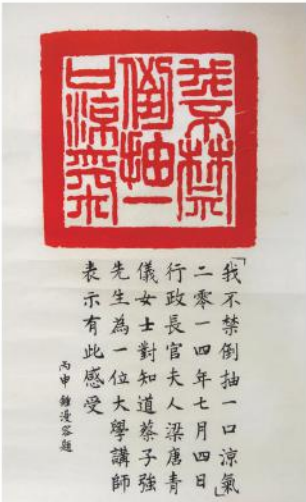 我不禁
倒抽一
口涼氣
「我不禁倒抽一口涼氣」
二零一四年七月四日
行政長官夫人梁唐青
儀女士對知道蔡子強
先生為一位大學講師
表示有此感受
丙申